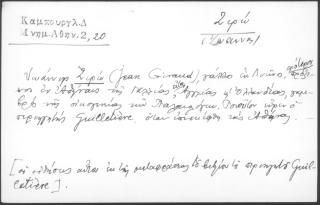 Καμπούργλ. Δ
Μνημ. Αθην. 2, 20
Ζιρώ
(Ιωάννης)
Ιωάννης Ζιρώ (Jean Giraud), γάλλος εκ Λυώνος, πρόξενος
εν Αθήναις της Γαλλίας, είτα Αγγλίας κ' Ολλανδίας, γαμ-
βρός της οικογενείας των Παλαιολόγων.
περιηγητής Guilletière, όταν επεσκέφθη τας Αθήνας. -
[αι ειδήσεις αύται εκ της μεταφράσεως του βιβλίου του περιηγητού Guil-
letière].